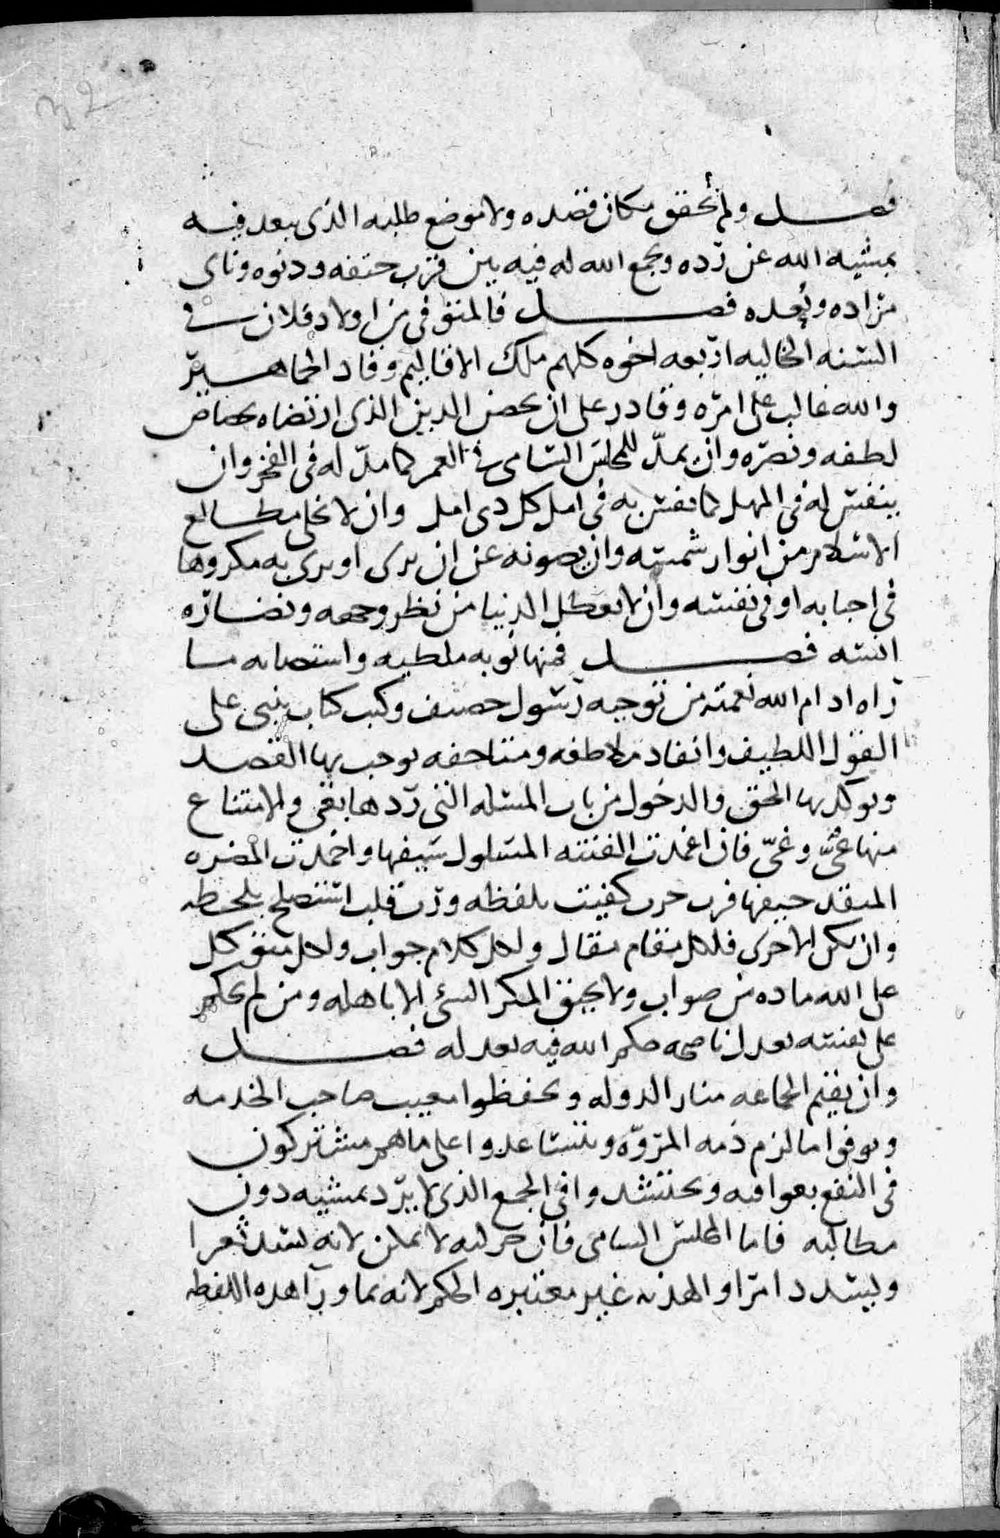 32
فصل ولم أحقق مكان قصده ولا موضع طلبه الذى يعد فيه
بمشيه الله عن رده ويجمع الله له فيه بين قرب حتفه ودنوه وناى
مراده وبُعده فصل فالمتوفى من اولاد فلان فى
السنه الخاليه اربعه اخوه كلهم ملك الاقاليم وقاد الجماهير
والله غالب على امره وقادر على ان يحضر الدين الذى ارتضاه بخصائص
لطفه ونصره وان يمد للمجلس السامى فى العمر كما مد له فى الفخر وان
ينفس له فى المهل كما نفس به فى امل كل ذى امل وان لا يخلى مطالع
الاسلام من انوار شمسه وان يصونه عن ان يرى او يرى به مكروها
فى احبابه او فى نفسه وان لا يعطل الدنيا من نظر وجهه ونضاره
انسه فصل فمنها نوبه ملطيه واستصابه ما
رآه ادام الله نعمته من توجيه رسول حصيف وكتب كتاب ينبى على
القول اللطيف وانفاد ملاطفه ومتاحفه يوجب بها القصد
ويوكد بها الحق والدخول من باب المسله التى ردها بغى والامتناع
منها عىّ وغىّ فان اغمدت الفتنه المسلول سيفها واخمدت المضره
المتقد حيفها فرب حرب كفيت بلفظه ورب قلب استصلح بلحظه
وان يكن الاخرى فلكل مقام مقال ولكل كلام جواب ولكل متوكل
على الله ماده من صواب ولا يحيق المكر السئ الا باهله ومن لم يحكم
على نفسه بعدل ناصحه حكم الله فيه بعدله فصل
وان يقيم الجماعه منار الدوله ويحفظوا مغيب صاحب الخدمه
ويوفوا ما لزم ذمه المروّه ويتساعدوا على ما هم مشتركون
فى النفع بعواقبه ويحتشدوا فى الجمع الذى لا يرد بمشيه دون
مطالبه فاما المجلس السامى فان حركته لا تمكن لانه يسد ثغرا
ويسدد امرا والهدنه غير معتبره الحكم لانه بما ورآ هده اللفظه